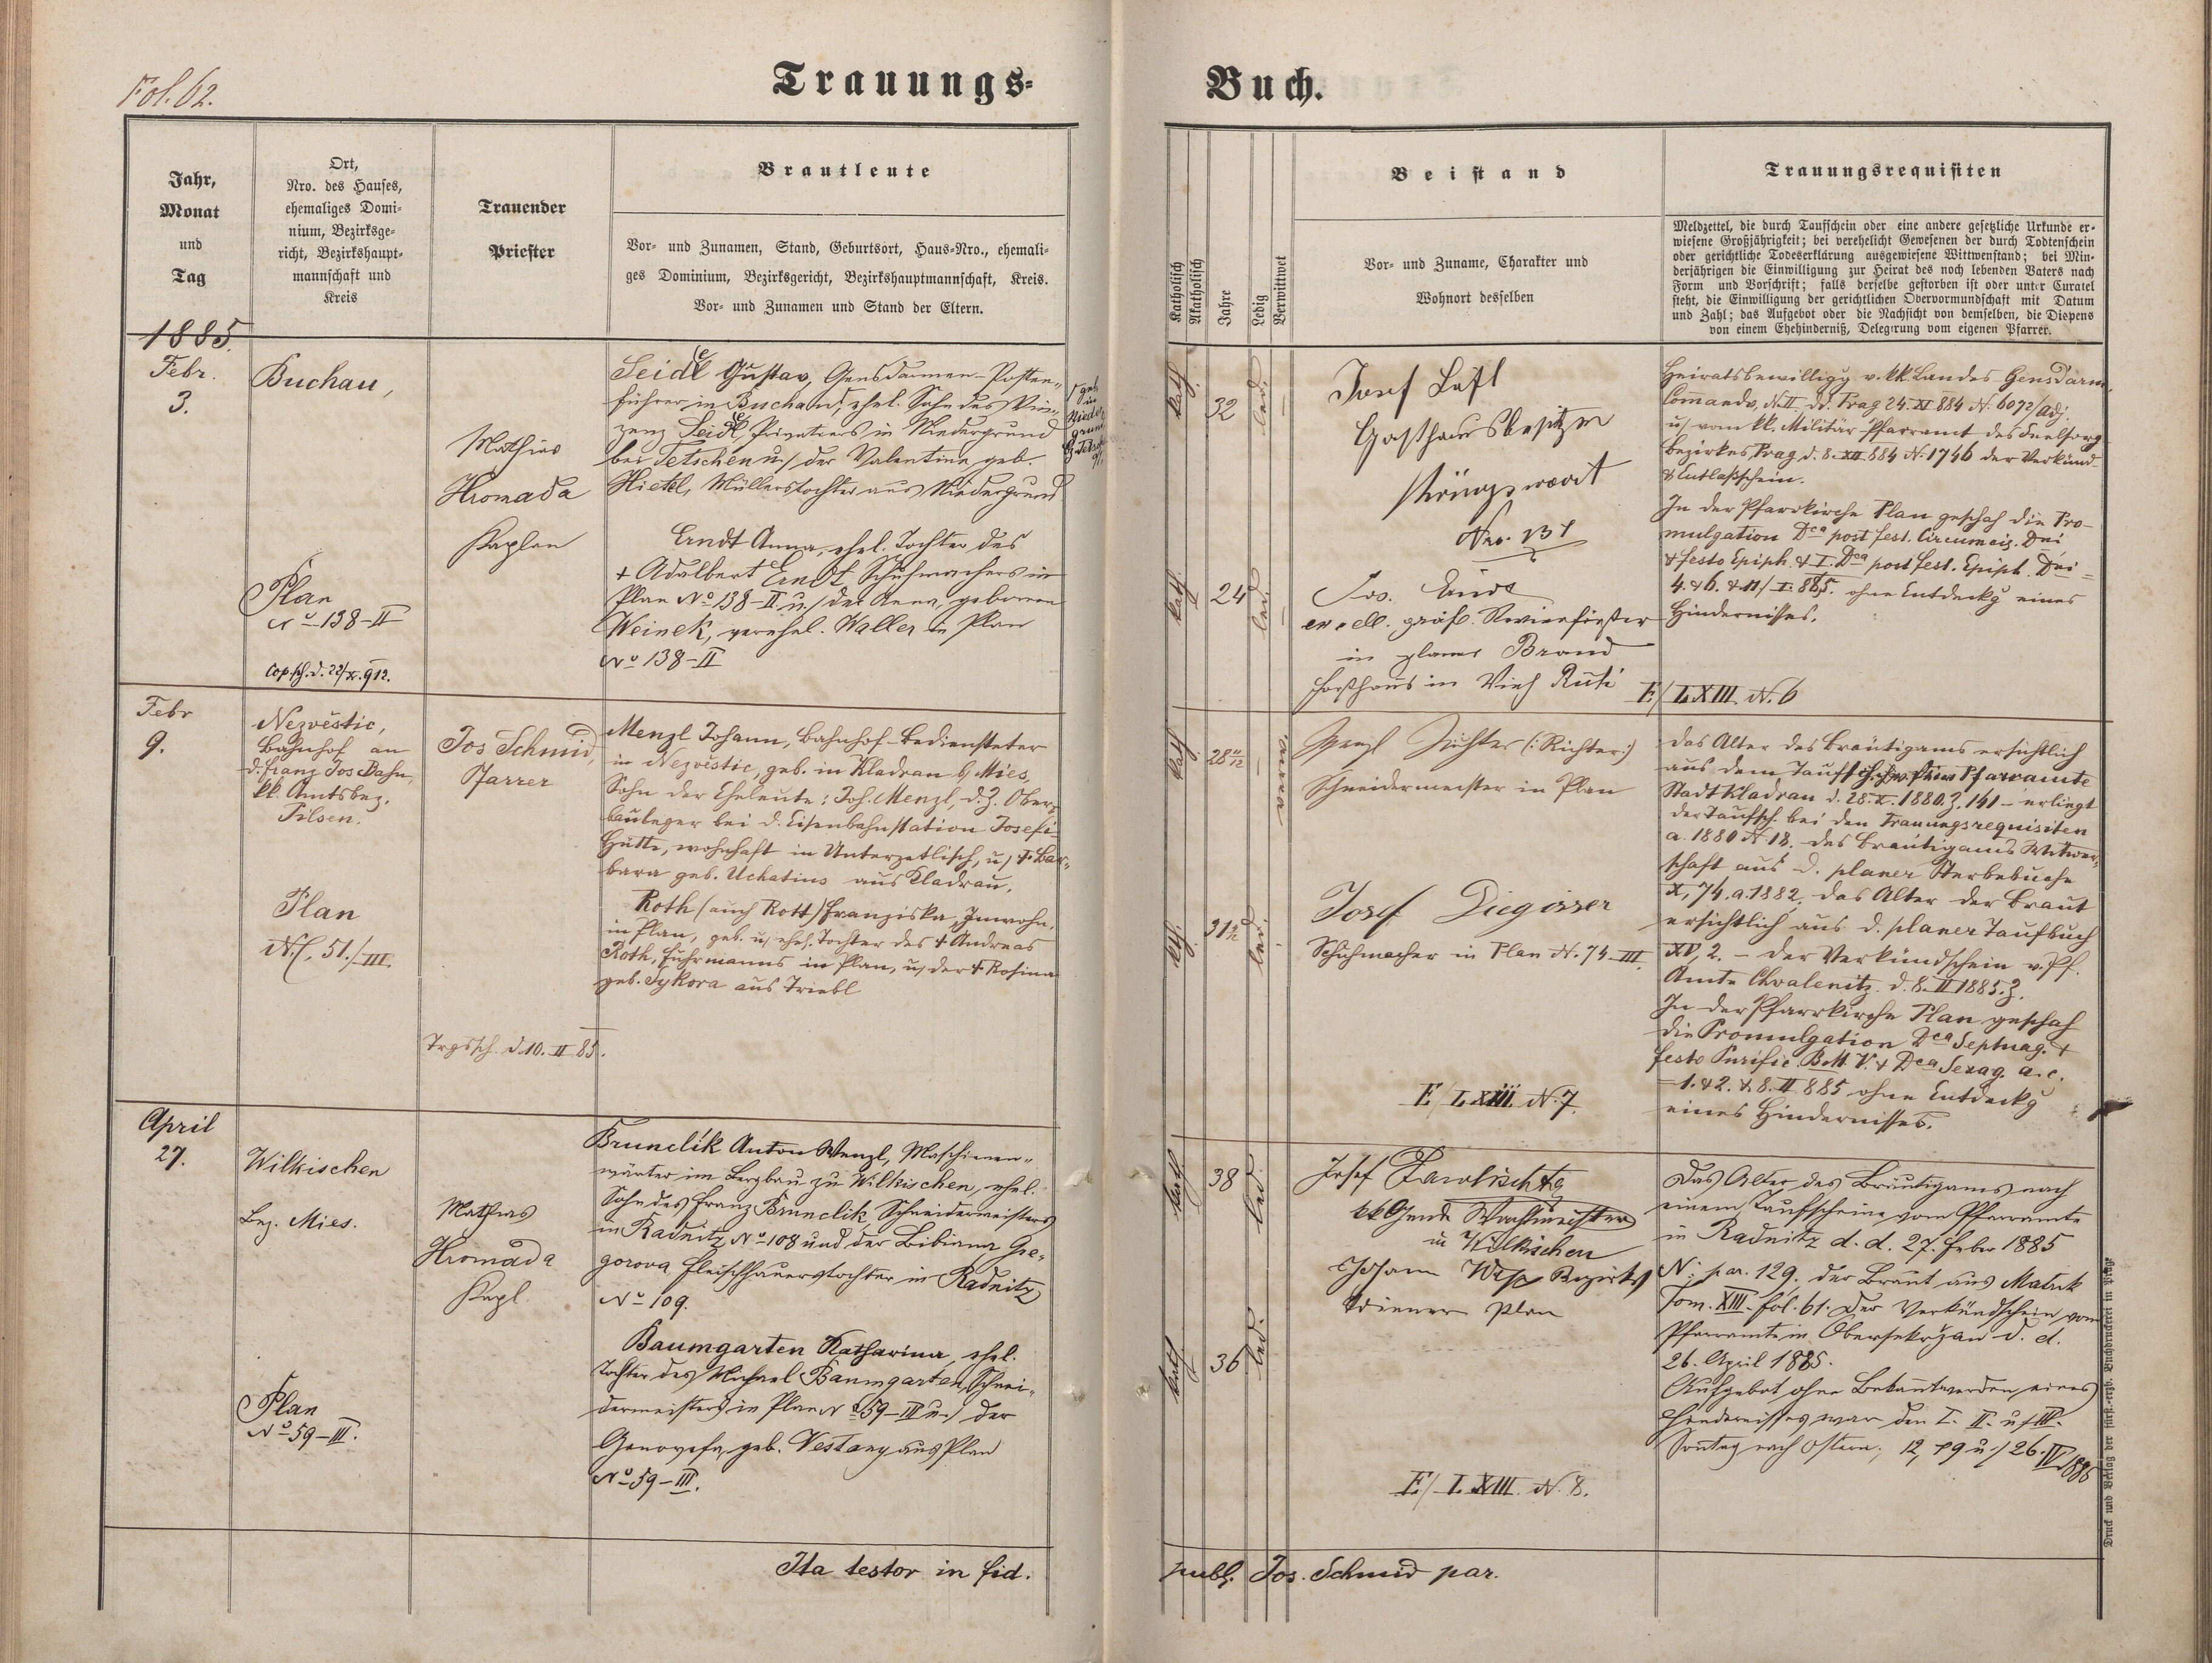 Fol. 62.
Trauungs-
Buch.
Jahr,
Monat
und
Tag
Ort,
Nro. des Hauses,
ehemaliges Domi-
nium, Bezirksge-
richt, Bezirkshaupt-
mannschaft und
Kreis
Trauender
Priester
Brautleute
Vor- und Zunamen, Stand, Geburtsort, Haus-Nro., ehemali-
ges Dominium, Bezirksgericht, Bezirkshauptmannschaft, Kreis.
Vor- und Zunamen und Stand der Eltern.
Katholisch
Akatholisch
Jahre
Ledig
Verwittwet
Beistand
Vor- und Zuname, Charakter und
Wohnort desselben
Trauungsrequisiten
Meldzettel, die durch Taufschein oder eine andere gesetzliche Urkunde er-
wiesene Großjährigkeit; bei verehelicht Gewesenen der durch Todtenschein
oder gerichtliche Todeserklärung ausgewiesene Wittwenstand; bei Min-
derjährigen die Einwilligung zur Heirat des noch lebenden Vaters nach
Form und Vorschrift; falls derselbe gestorben ist oder unter Curatel
steht, die Einwilligung der gerichtlichen Obervormundschaft mit Datum
und Zahl; das Aufgebot oder die Nachsicht von demselben, die Dispens
von einem Ehehinderniß, Delegirung vom eigenen Pfarrer.
1885.
Febr.
3.
Buchau,
Plan
No 138-II
Cop. sch. d. 22/X. 912.
Mathias
Hromada
Kaplan
Seidl Gustav, Gensdarmen-Posten-
führer in Buchau, ehel. Sohn des Vin-
zenz Seidl, Privatiers in Niedergrund
bei Tetschen u/ der Valentine geb.
Hietel, Müllerstochter aus Niedergrund
geb.
in
Nieder
grund
Erndt Anna, ehel. Tochter des
+ Adalbert Erndt, Schuhmachers in
Plan No 138-II u./ der Anna, geborene
Weinek, verehel. Waller in Plan
No 138-II
kath.
32
led.
kath.
24
led.
Josef
Gasthausbesitzer
Königswart
Nro. 131
Jos.
gräfl. Revierförster
in planer Brand
Forsthaus in
Heiratsbewilligg v. kk. Landes-Gensdarm
Comando, N. II. dd. Prag 24. XI 884 N. 6072/Adj.
u/ vom kk. Militär-Pfarramt des Seelsorg-
bezirkes Prag d. 8. XII. 884 N. 1746 der Verkünd-
& Entlaßschein.
In der Pfarrkirche Plan geschah die Pro-
mulgation Dca post fest. Circumcis. Dni
& festo Epiph. & I. Dca post fest. Epiph. Dni =
4. & 6. & 11/ I. 885. ohne Entdeckg eines
Hindernisses.
E/ LXIII N. 6
Febr
9.
Nezvěstic,
Bahnhof an
d. Franz Jos Bahn,
kk. Amtsbez.
Pilsen.
Plan
N. C. 51./III
Jos Schmid,
Pfarrer
Trgssch d. 10. II 85.
Menzl Johann, Bahnhof-Bediensteter
in Nezvěstic, geb. in Kladrau b/ Mies,
Sohn der Eheleute: Joh. Menzl, d. Z. Ober-
bauleger bei d. Eisenbahnstation Josefi-
Hütte, wohnhaft in Unterzetlisch, u/ + Bar-
bara geb. Uchatius aus Kladrau.
Roth (auch Rott) Franziska, Inwohn.
in Plan, geb. u/ ehel. Tochter des + Andreas
Roth, Fuhrmanns in Plan, u/ der + Rosina
geb. Sykora aus Triebl
kath.
28
verw.
kath.
31
led.
Wenzl Richter (: Richter :)
Schneidermeister in Plan
Josef
Schuhmacher in Plan N. 74-III.
E/ LXIII. N. 7.
Das Alter des Bräutigams ersichtlich
aus dem Taufsch. Pfarramte
Stadt Kladrau d. 28. X. 1880. Z. 141 - erliegt
der Taufsch. bei den Trauungsrequisiten
a. 1880 N 18. des Bräutigams Witwer-
schaft aus d. planer Sterbebuche
X, 74. a. 1882. das Alter der Braut
ersichtlich aus d. planer Taufbuch
XV, 2. - Der Verkündschein v. Pf.
Amte Chvalenitz d. 8. II 1885. Z.
In der Pfarrkirche Plan geschah
die Promulgation Dca Septuag. &
festo Purific. B. M. V. & Dca Sexag. a. c.
= 1. & 2. & 8. II 885 ohne Entdeckg
eines Hindernisses.
April
27.
Wilkischen
Bez. Mies.
Plan
No 59-III.
Mathias
Hromada
Kapl.
Brunclik Anton Wenzl, Maschinen-
wärter im Bergbau zu Wilkischen, ehel.
Sohn des Franz Brunclik, Schneidermeisters
in Radnitz No 108 und der Bibiana Gre-
gorova Fleischhauerstochter in Radnitz
No 109.
Baumgarten Katharina, ehel.
Tochter des Michael Baumgarten, Schnei-
dermeisters in Plan No 59-III u./ der
Genovefa, geb. Vestany aus Plan
No 59-III.
kath.
38
led.
kath.
36
led.
Josef
kk Gend. Wachtmeister
in Wilkischen
Johann Bezirks
diener Plan
E/ LXIII. N. 8.
Das Alter des Bräutigams nach
einem Taufscheine vom Pfarramte
in Radnitz d. d. 27. Feber 1885
N: par. 129. der Braut aus Matrik
Tom. XIII. fol. 61. Der Verkündschein vom
Pfarramte in Obersekržan d. d.
26. April 1885.
Aufgebot ohne Bekanntwerden eines
Hindernisses war den I. II. u/ III.
Sonntag nach Ostern; 12, 19 u./ 26. IV 1885
Ita testor in fid.
publ. Jos. Schmid par.
Druck und Verlag der fürst.-erzb. Buchdruckerei in Prag.